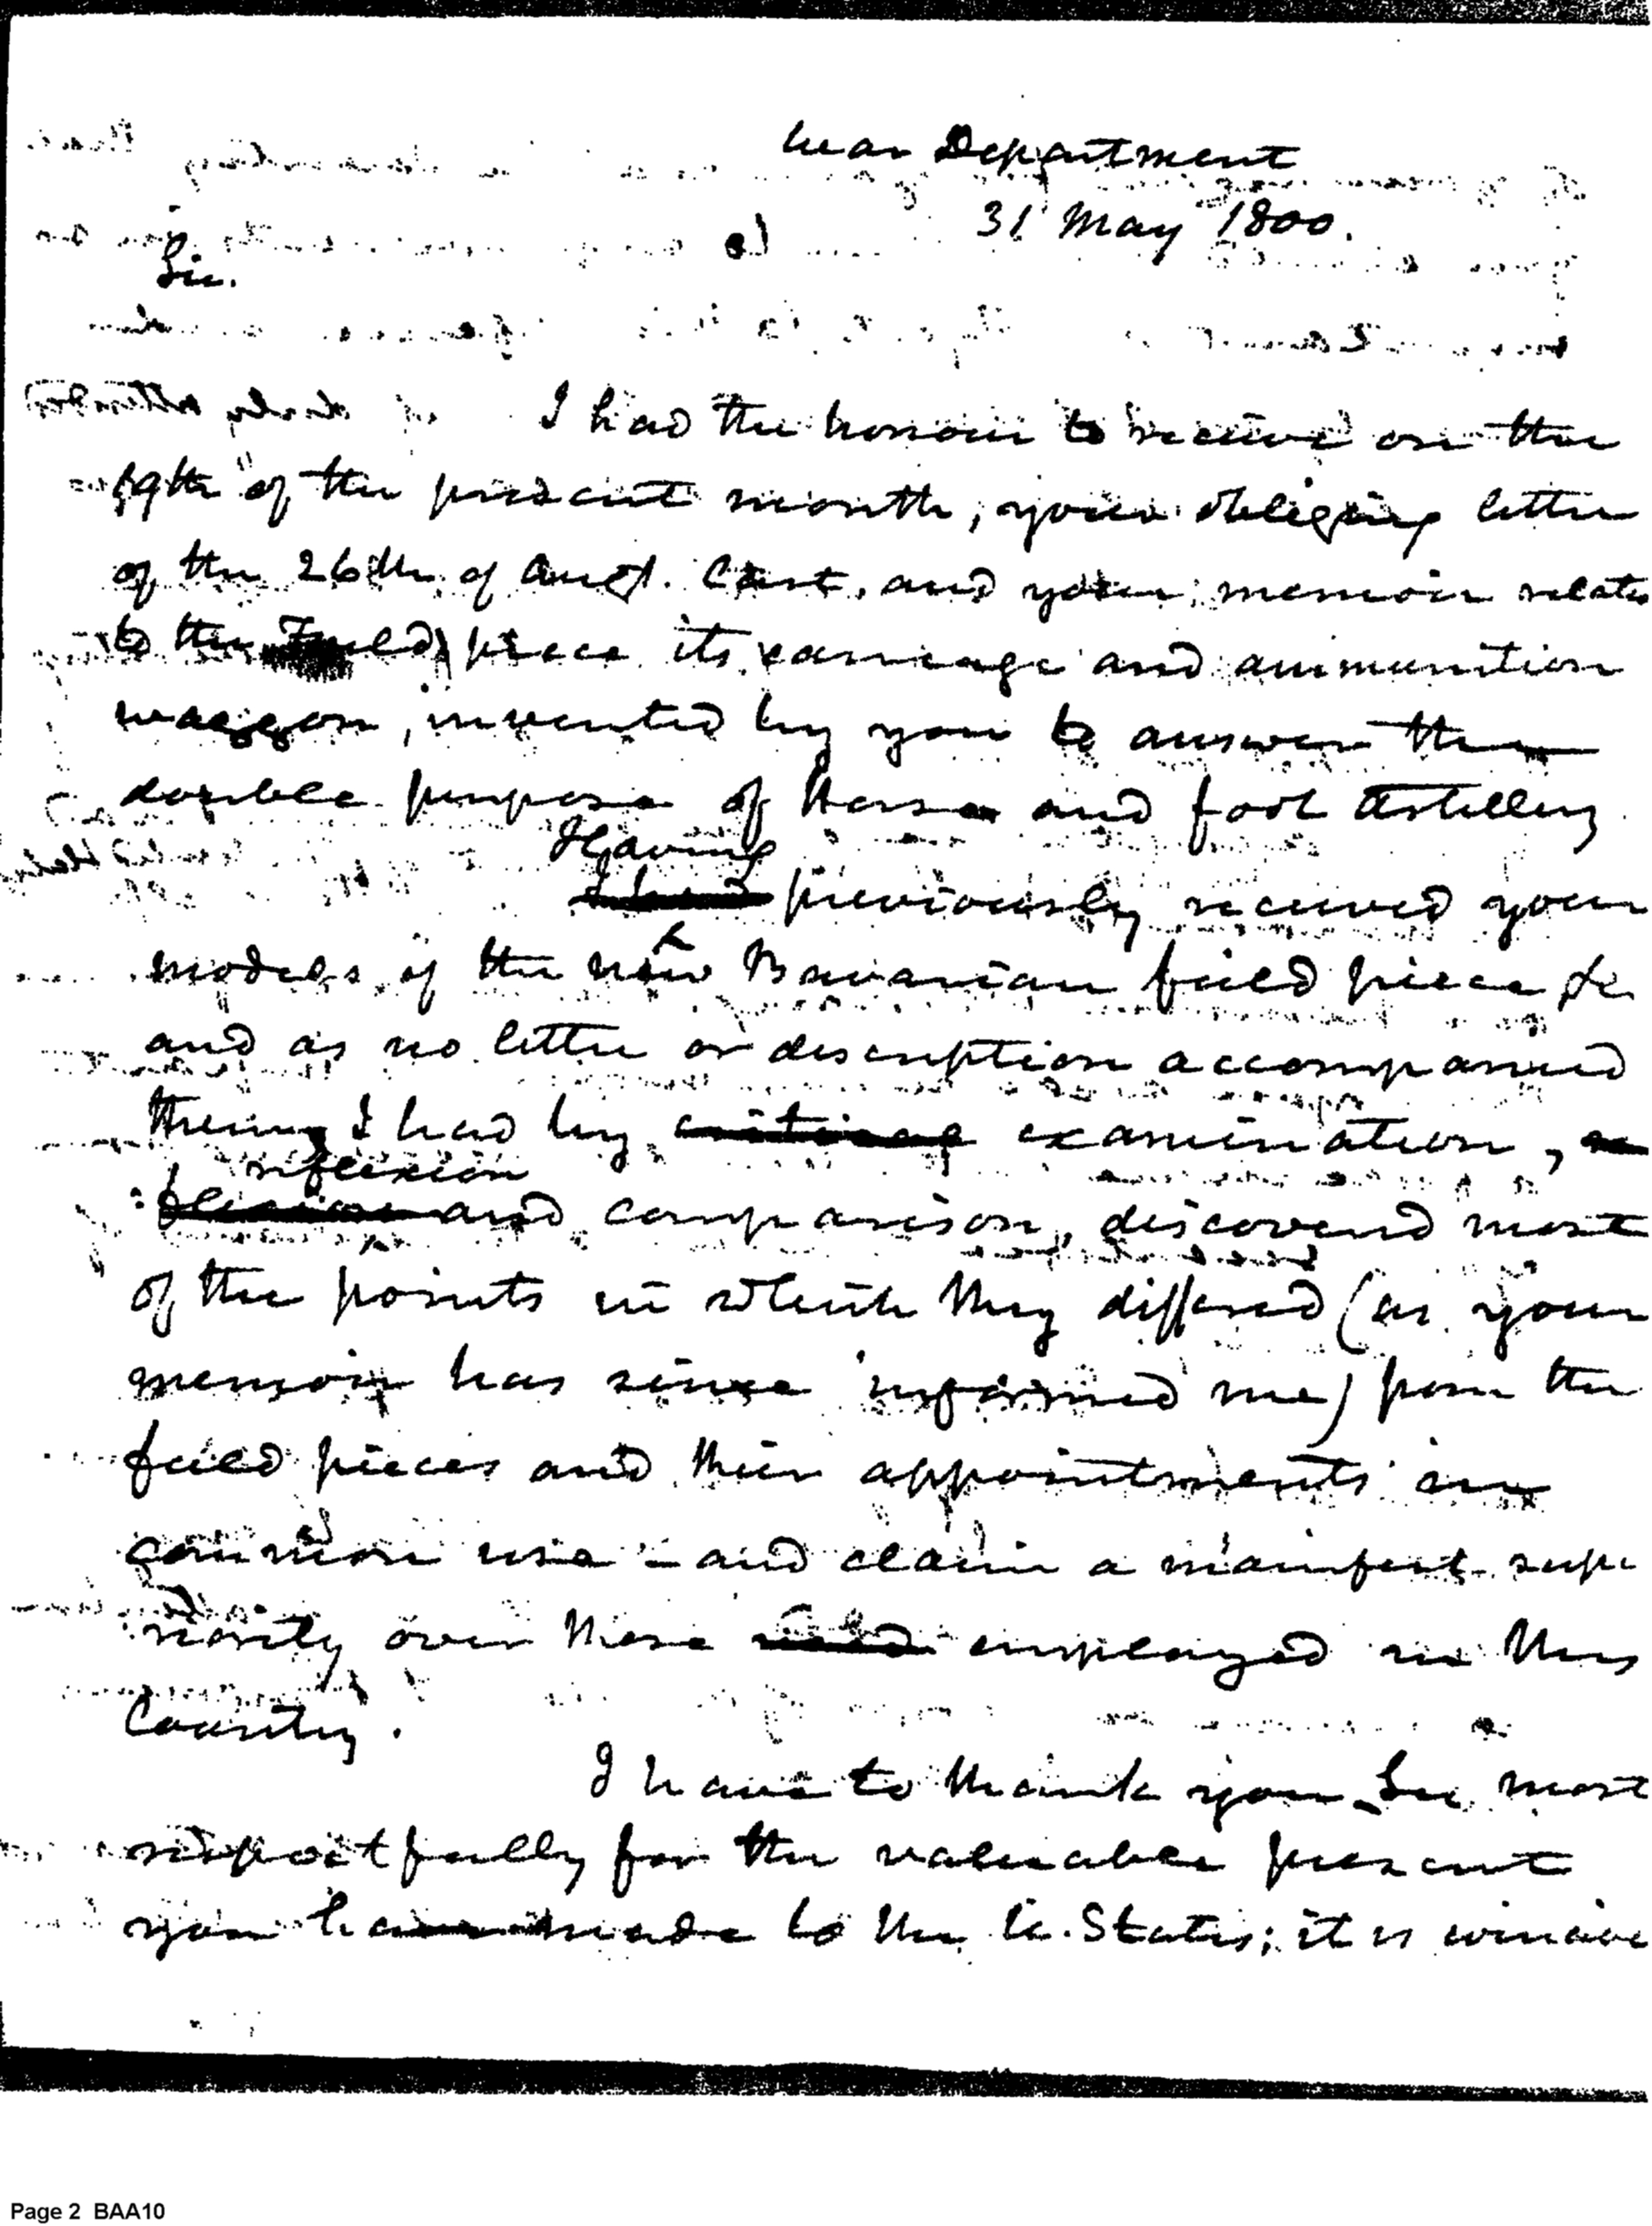 War Department
31 May 1800.
Sir.
I had the honour to receive on the
19th of the present month, your obliging letter
of the 26th of Augt. last, and your memoir relate
to the Field piece its carriage and ammunition
waggon, invented by you to answer the
double purpose of Horse and foot Artillery
Having
previously received your
models of the new Bavarian field piece &c
and as no letter or description accompanied
them, I had by critical examination, re
reflexion
flexion and comparison, discovered most
of the points in which they differed (as your
memoir has since informed me) from the
field pieces and their appointments in
common use - and claim a manifest supe
riority over those used employed in this
Country.
I have to thank you Sir most
respectfully for the valuable present
you have made to the U. States; it is
Page 2 BAA10